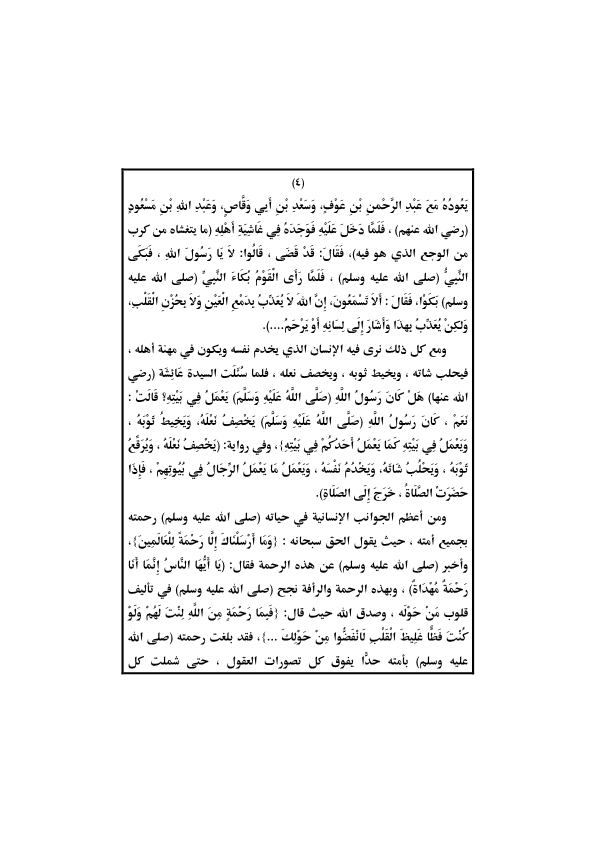 (٤)
يَعُودُهُ مَعَ عَبْدِ الرَّحْمنِ بْنِ عَوْفٍ، وَسَعْدِ بْنِ أَبِي وَقَّاصٍ، وَعَبْدِ اللهِ بْنِ مَسْعُودٍ
(رضي الله عنهم) ، فَلَمَّا دَخَلَ عَلَيْهِ فَوَجَدَهُ فِي غَاشِيَةِ أَهْلِهِ (ما يتغشاه من كرب
من الوجع الذي هو فيه)، فَقَالَ: قَدْ قَضَى ، قَالُوا: لاَ يَا رَسُولَ اللهِ ، فَبَكَى
النَّبِيُّ (صلى الله عليه وسلم) ، فَلَمَّا رَأَى الْقَوْمُ بُكَاءَ النَّبِيِّ (صلى الله عليه
وسلم) بَكَوْا، فَقَالَ : أَلاَ تَسْمَعُونَ، إِنَّ اللهَ لاَ يُعَذِّبُ بِدَمْعِ الْعَيْنِ وَلاَ بِحُزْنِ الْقَلْبِ،
وَلكِنْ يُعَذِّبُ بِهذَا وَأَشَارَ إِلَى لِسَانِهِ أَوْ يَرْحَمُ....).
ومع كل ذلك نرى فيه الإنسان الذي يخدم نفسه ويكون في مهنة أهله ،
فيحلب شاته ، ويخيط ثوبه ، ويخصف نعله ، فلما سُئلَت السيدة عَائِشَة (رضي
الله عنها) هَلْ كَانَ رَسُولُ اللَّهِ (صَلَّى اللَّهُ عَلَيْهِ وَسَلَّمَ) يَعْمَلُ فِي بَيْتِهِ؟ قَالَتْ :
نَعَمْ ، كَانَ رَسُولُ اللَّهِ (صَلَّى اللَّهُ عَلَيْهِ وَسَلَّمَ) يَخْصِفُ نَعْلَهُ، وَيَخِيطُ ثَوْبَهُ ،
وَيَعْمَلُ فِي بَيْتِهِ كَمَا يَعْمَلُ أَحَدُكُمْ فِي بَيْتِهِ)، وفي رواية: (يَخْصِفُ نَعْلَهُ ، وَيُرَقِّعُ
ثَوْبَهُ ، وَيَحْلُبُ شَاتَهُ، وَيَخْدُمُ نَفْسَهُ ، وَيَعْمَلُ مَا يَعْمَلُ الرِّجَالُ فِي بُيُوتِهِمْ ، فَإِذَا
حَضَرَتْ الصَّلَاةُ ، خَرَجَ إِلَى الصَلَاةِ).
ومن أعظم الجوانب الإنسانية في حياته (صلى الله عليه وسلم) رحمته
بجميع أمته ، حيث يقول الحق سبحانه : {وَمَا أَرْسَلْنَاكَ إِلَّا رَحْمَةً لِلْعَالَمِينَ}،
وأخبر (صلى الله عليه وسلم) عن هذه الرحمة فقال: (يَا أَيُّهَا النَّاسُ إِنَّمَا أَنَا
رَحْمَةٌ مُهْدَاةٌ) ، وبهذه الرحمة والرأفة نجح (صلى الله عليه وسلم) في تأليف
قلوب مَنْ حَوْلَه ، وصدق الله حيث قال: {فَبِمَا رَحْمَةٍ مِنَ اللَّهِ لِنْتَ لَهُمْ وَلَوْ
كُنْتَ فَظًّا غَلِيظَ الْقَلْبِ لَانْفَضُّوا مِنْ حَوْلِكَ ...}، فقد بلغت رحمته (صلى الله
عليه وسلم) بأمته حدًّا يفوق كل تصورات العقول ، حتى شملت كل